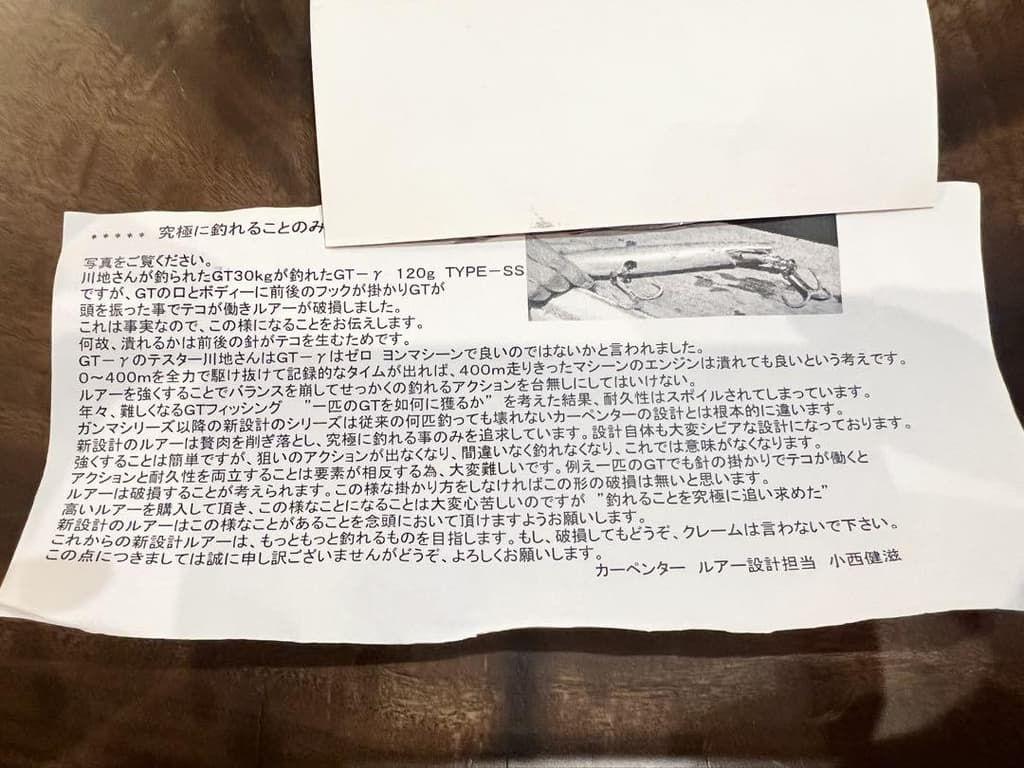 ***** 究極に釣れることのみ
写真をご覧ください。
川地さんが釣られたGT30kgが釣れたGT-γ 120g TYPE-SS
ですが、GTの口とボディーに前後のフックが掛かりGTが
頭を振った事でテコが働きルアーが破損しました。
これは事実なので、この様になることをお伝えします。
何故、潰れるかは前後の針がテコを生むためです。
GT-γのテスター川地さんはGT-γはゼロ ヨンマシーンで良いのではないかと言われました。
0~400mを全力で駆け抜けて記録的なタイムが出れば、400m走りきったマシーンのエンジンは潰れても良いという考えです。
ルアーを強くすることでバランスを崩してせっかくの釣れるアクションを台無しにしてはいけない。
年々、難しくなるGTフィッシング "一匹のGTを如何に獲るか" を考えた結果、耐久性はスポイルされてしまっています。
ガンマシリーズ以降の新設計のシリーズは従来の何匹釣っても壊れないカーペンターの設計とは根本的に違います。
新設計のルアーは贅肉を削ぎ落とし、究極に釣れる事のみを追求しています。設計自体も大変シビアな設計になっております。
強くすることは簡単ですが、狙いのアクションが出なくなり、間違いなく釣れなくなり、これでは意味がなくなります。
アクションと耐久性を両立することは要素が相反する為、大変難しいです。例え一匹のGTでも針の掛かりでテコが働くと
ルアーは破損することが考えられます。この様な掛かり方をしなければこの形の破損は無いと思います。
高いルアーを購入して頂き、この様なことになることは大変心苦しいのですが "釣れることを究極に追い求めた"
新設計のルアーはこの様なことがあることを念頭において頂けますようお願いします。
これからの新設計ルアーは、もっともっと釣れるものを目指します。もし、破損してもどうぞ、クレームは言わないで下さい。
この点につきましては誠に申し訳ございませんがどうぞ、よろしくお願いします。
カーペンター ルアー設計担当 小西健滋